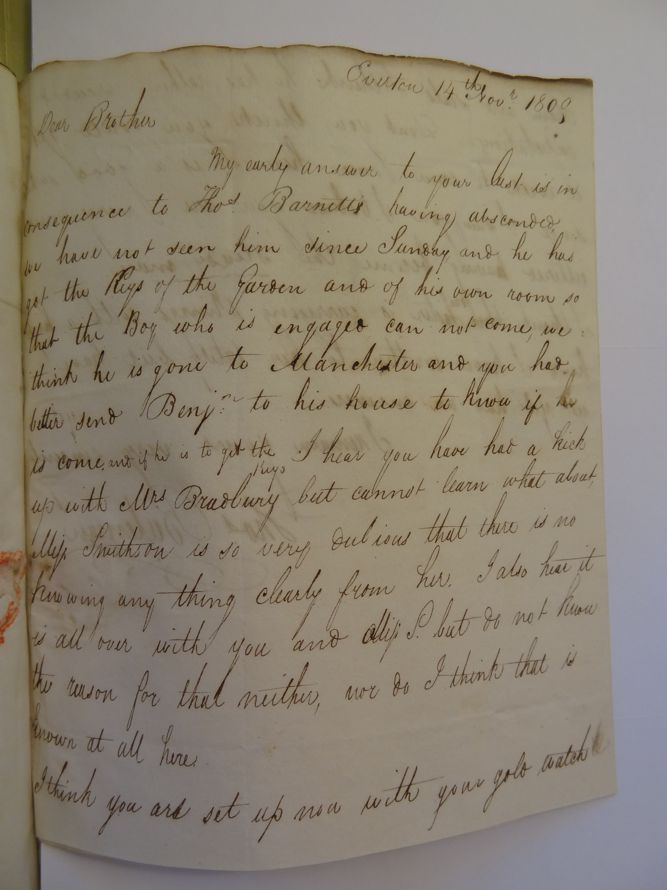 Everton 14th Novr. 1809
Dear Brother
My early answer to your last is in
consequence to Thos Barnetts having absconded,
we have not seen him since Sunday and he has
got the Keys of the Garden and of his own room so
that the Boy who is engaged can not come, we
think he is gone to Manchester and you had
better send Benjn. to his house to know if he
is come, and if he is to get the Keys I hear you have had a kick
up with Mrs Bradbury but cannot learn what about,
Miss Smithson is so very dubious that there is no
knowing any thing clearly from her. I also hear it
is all over with you and Miss S. but do not know
the reason for that neither, nor do I think that is
known at all here.
I think you are set up now with your gold watch